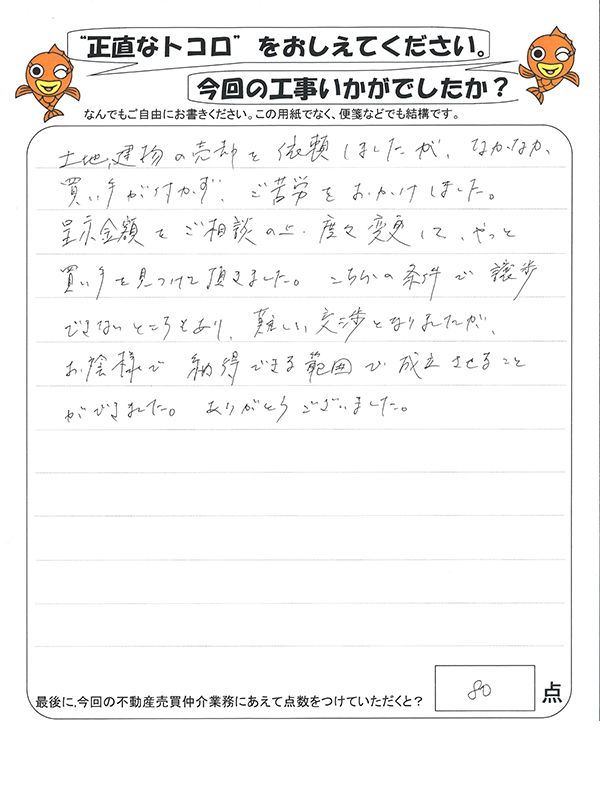 "正直なトコロ"をおしえてください。
今回の工事いかがでしたか？
なんでもご自由にお書きください。この用紙でなく、便箋などでも結構です。
土地、建物の売却を依頼しましたが、なかなか
買い手が付かず、ご苦労をおかけしました。
呈示金額をご相談の上、度々変更して、やっと
買い手を見つけて頂きました。こちらの条件で譲歩
できないところもあり、難しい交渉となりましたが、
お陰様で納得できる範囲で成立させること
ができました。ありがとうございました。
最後に、今回の不動産売買仲介業務にあえて点数をつけていただくと？ 80 点